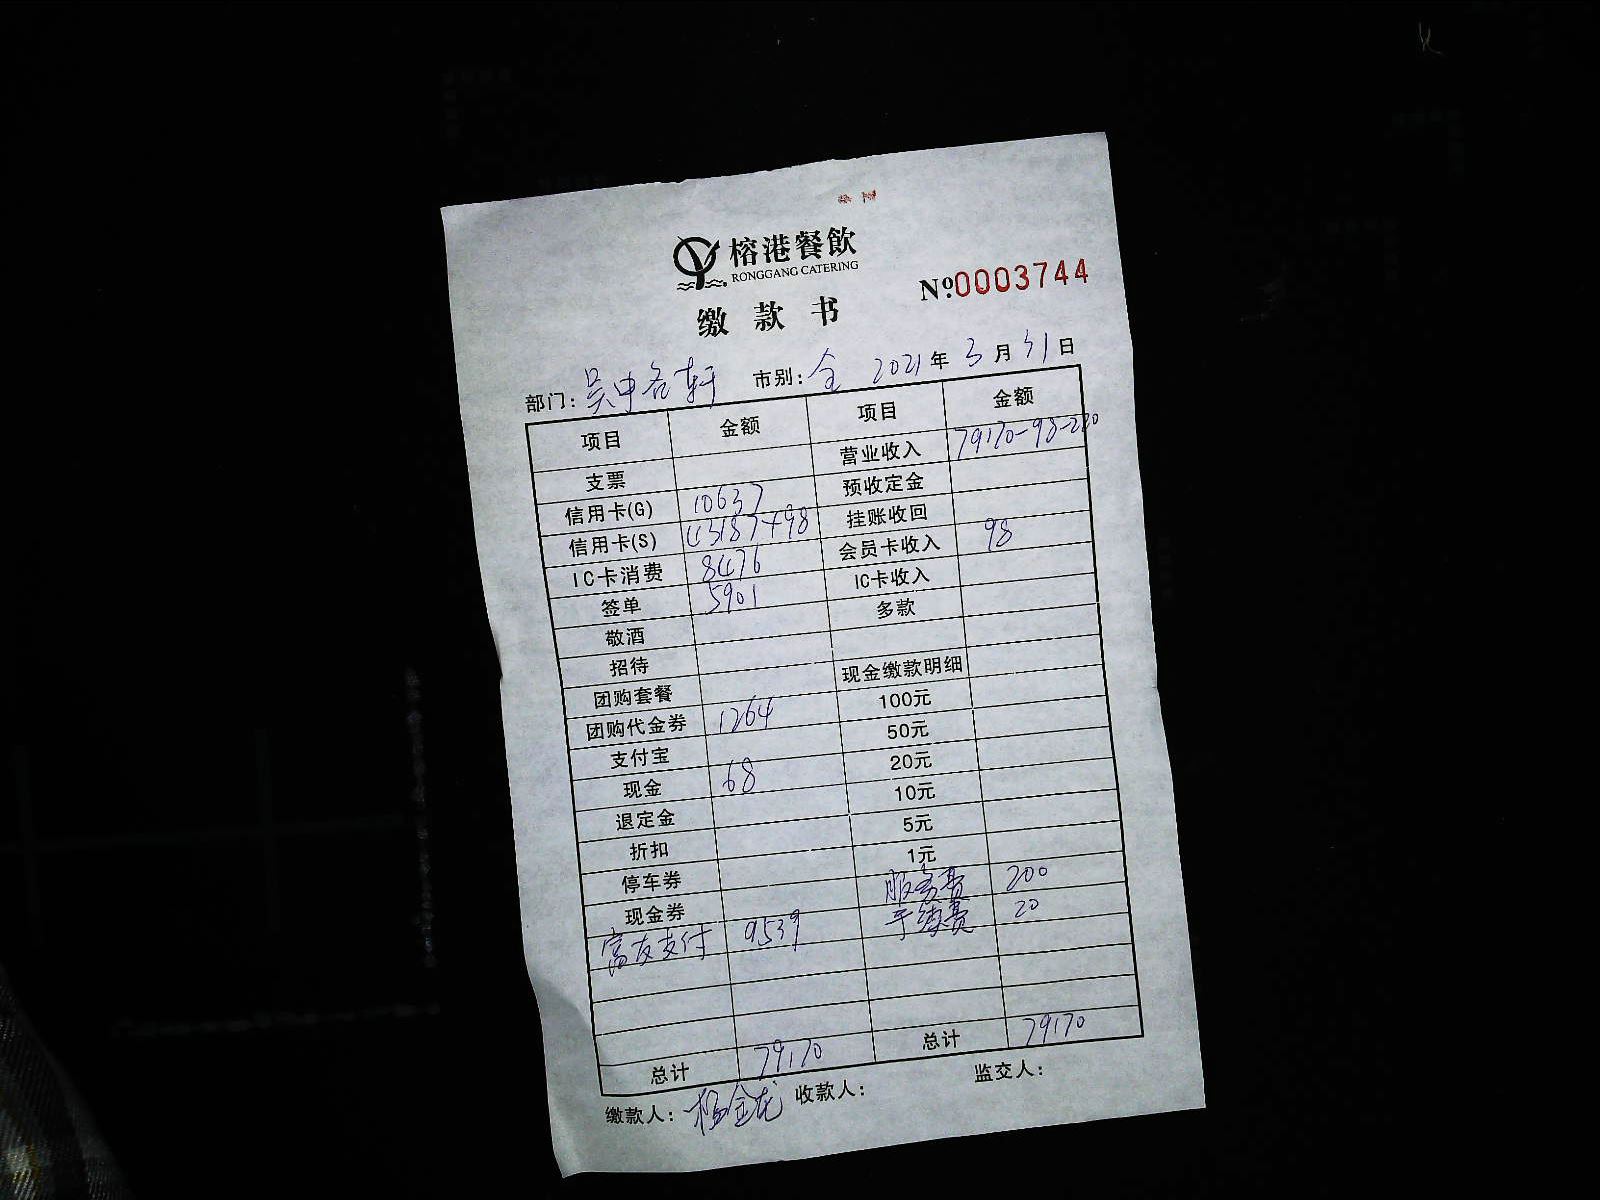 榕港餐飲
RONGGANG CATERING
缴款书
№0003744
部门: 吴中名轩 市别: 全 2021年3月31日
项目 金额 项目 金额
支票 营业收入 79170-98-220
信用卡(G) 10637 预收定金
信用卡(S) 43187+98 挂账收回
IC卡消费 8476 会员卡收入 98
签单 5901 IC卡收入
敬酒 多款
招待
团购套餐 现金缴款明细
团购代金券 1264 100元
支付宝 50元
现金 68 20元
退定金 10元
折扣 5元
停车券 1元
现金券 服务费 200
富友支付 9539 手续费 20
总计 79170 总计 79170
缴款人: 杨金龙 收款人: 监交人: